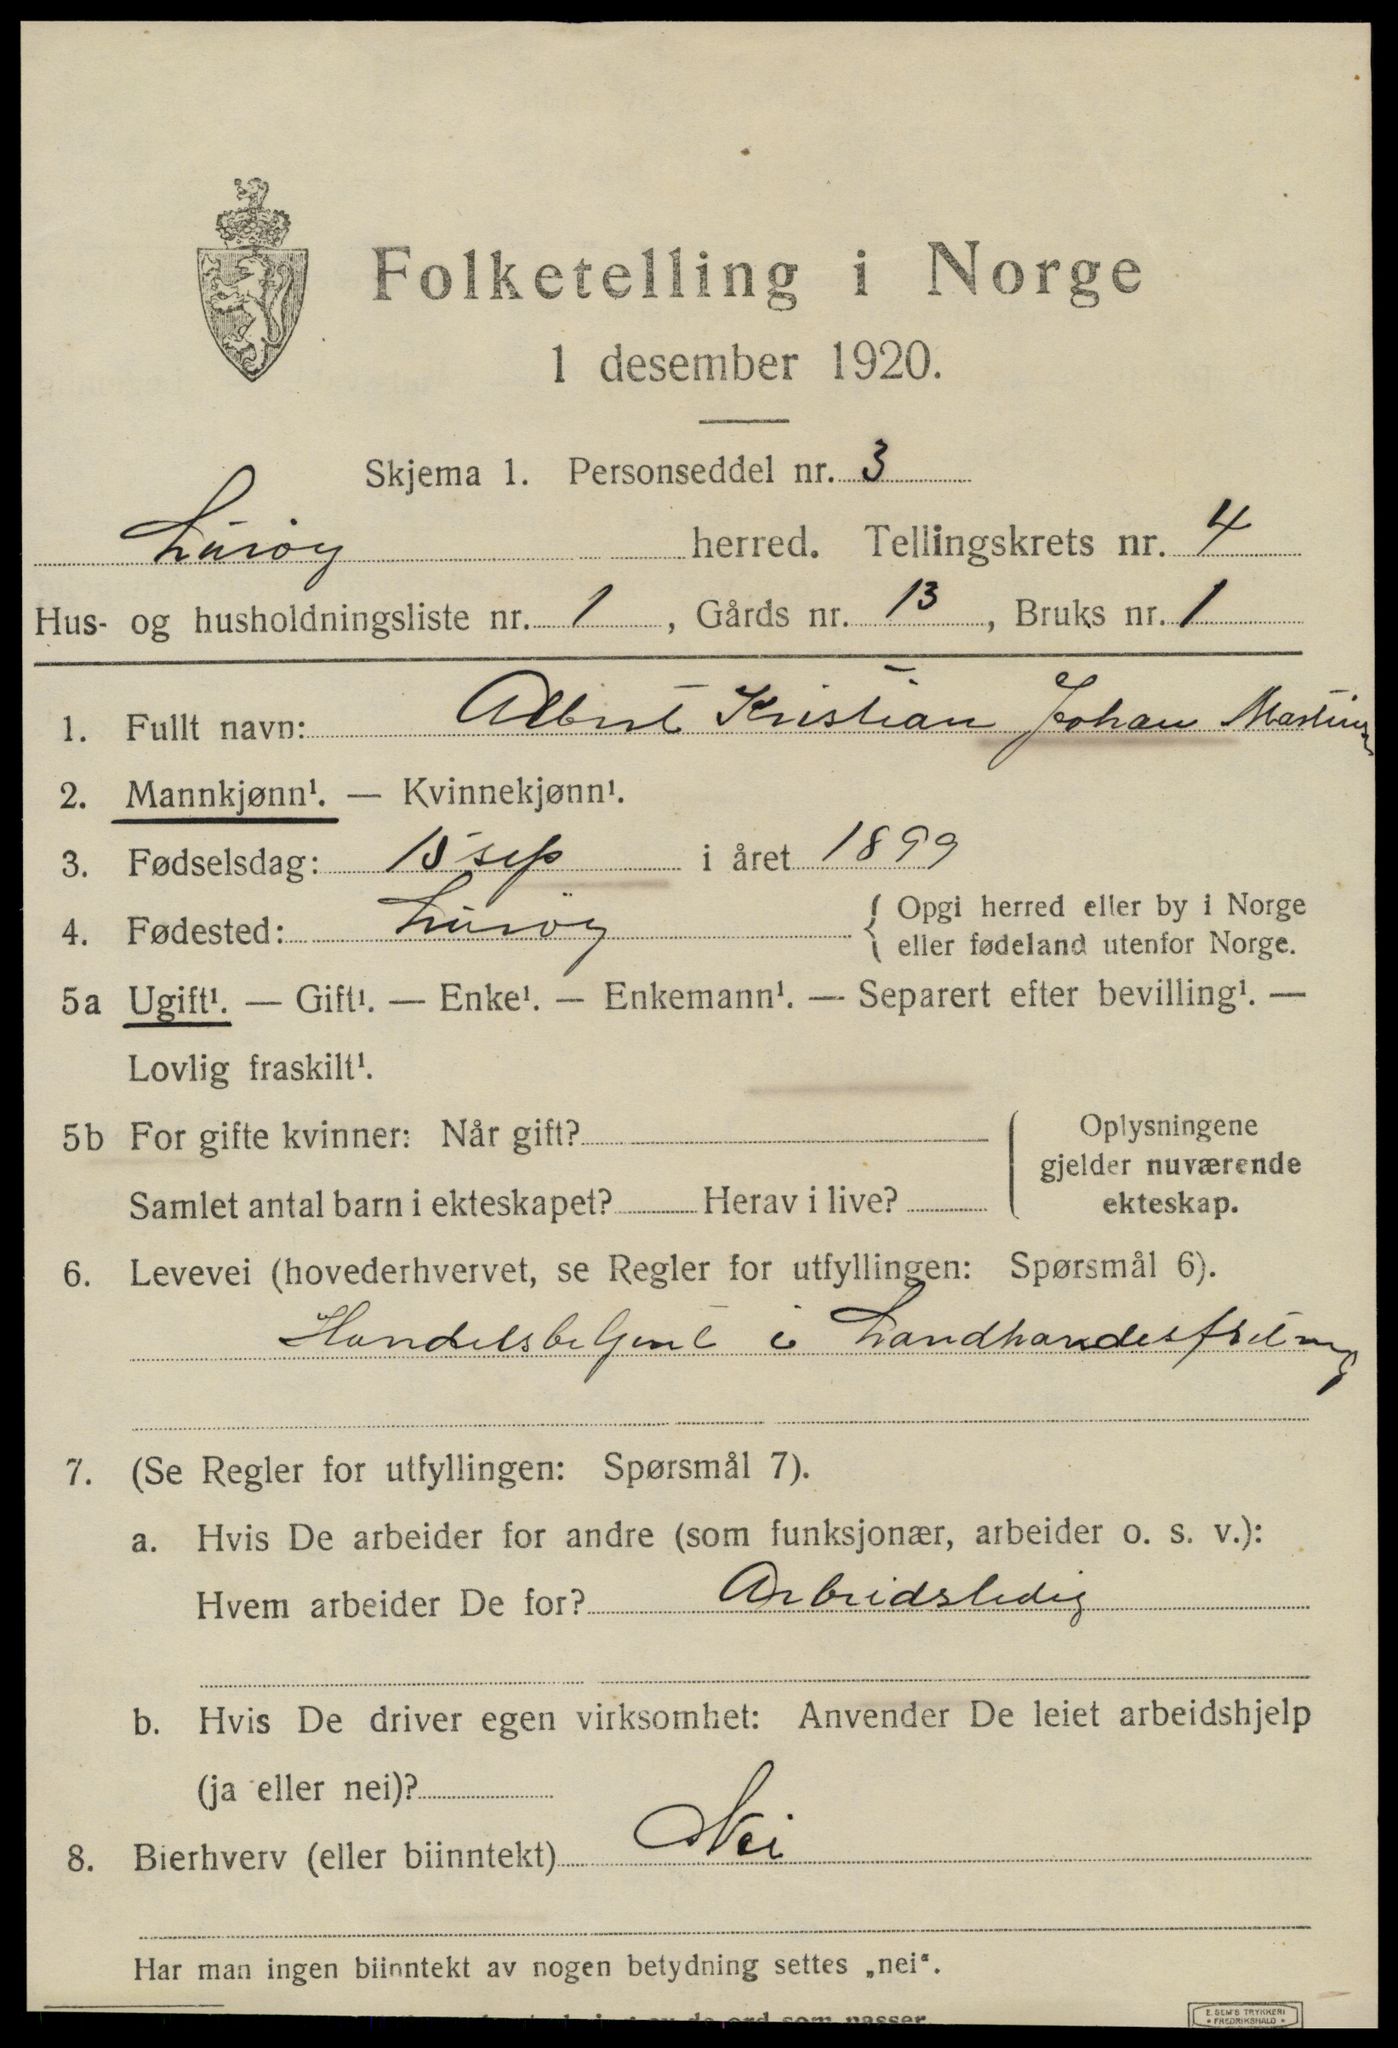 Folketelling i Norge
1 desember 1920.
Skjema 1. Personseddel nr. 3
Lurøy herred. Tellingskrets nr. 4
Hus- og husholdningsliste nr. 1, Gårds nr. 13, Bruks nr. 1
1. Fullt navn: Albert Kristian Johan Martins
2. Mannkjønn¹. — Kvinnekjønn¹.
3. Fødselsdag: 15 sep i året 1899
4. Fødested: Lurøy { Opgi herred eller by i Norge
eller fødeland utenfor Norge.
5a Ugift¹. — Gift¹. — Enke¹. — Enkemann¹. — Separert efter bevilling¹. —
Lovlig fraskilt¹.
5b For gifte kvinner: Når gift?
Samlet antal barn i ekteskapet? Herav i live?
Oplysningene
gjelder nuværende
ekteskap.
6. Levevei (hovederhvervet, se Regler for utfyllingen: Spørsmål 6).
Handelsbetjent i
7. (Se Regler for utfyllingen: Spørsmål 7).
a. Hvis De arbeider for andre (som funksjonær, arbeider o. s. v.):
Hvem arbeider De for? Arbeidsledig
b. Hvis De driver egen virksomhet: Anvender De leiet arbeidshjelp
(ja eller nei)?
8. Bierhverv (eller biinntekt) Nei
Har man ingen biinntekt av nogen betydning settes „nei“.
E. SEM'S TRYKKERI
FREDRIKSHALD